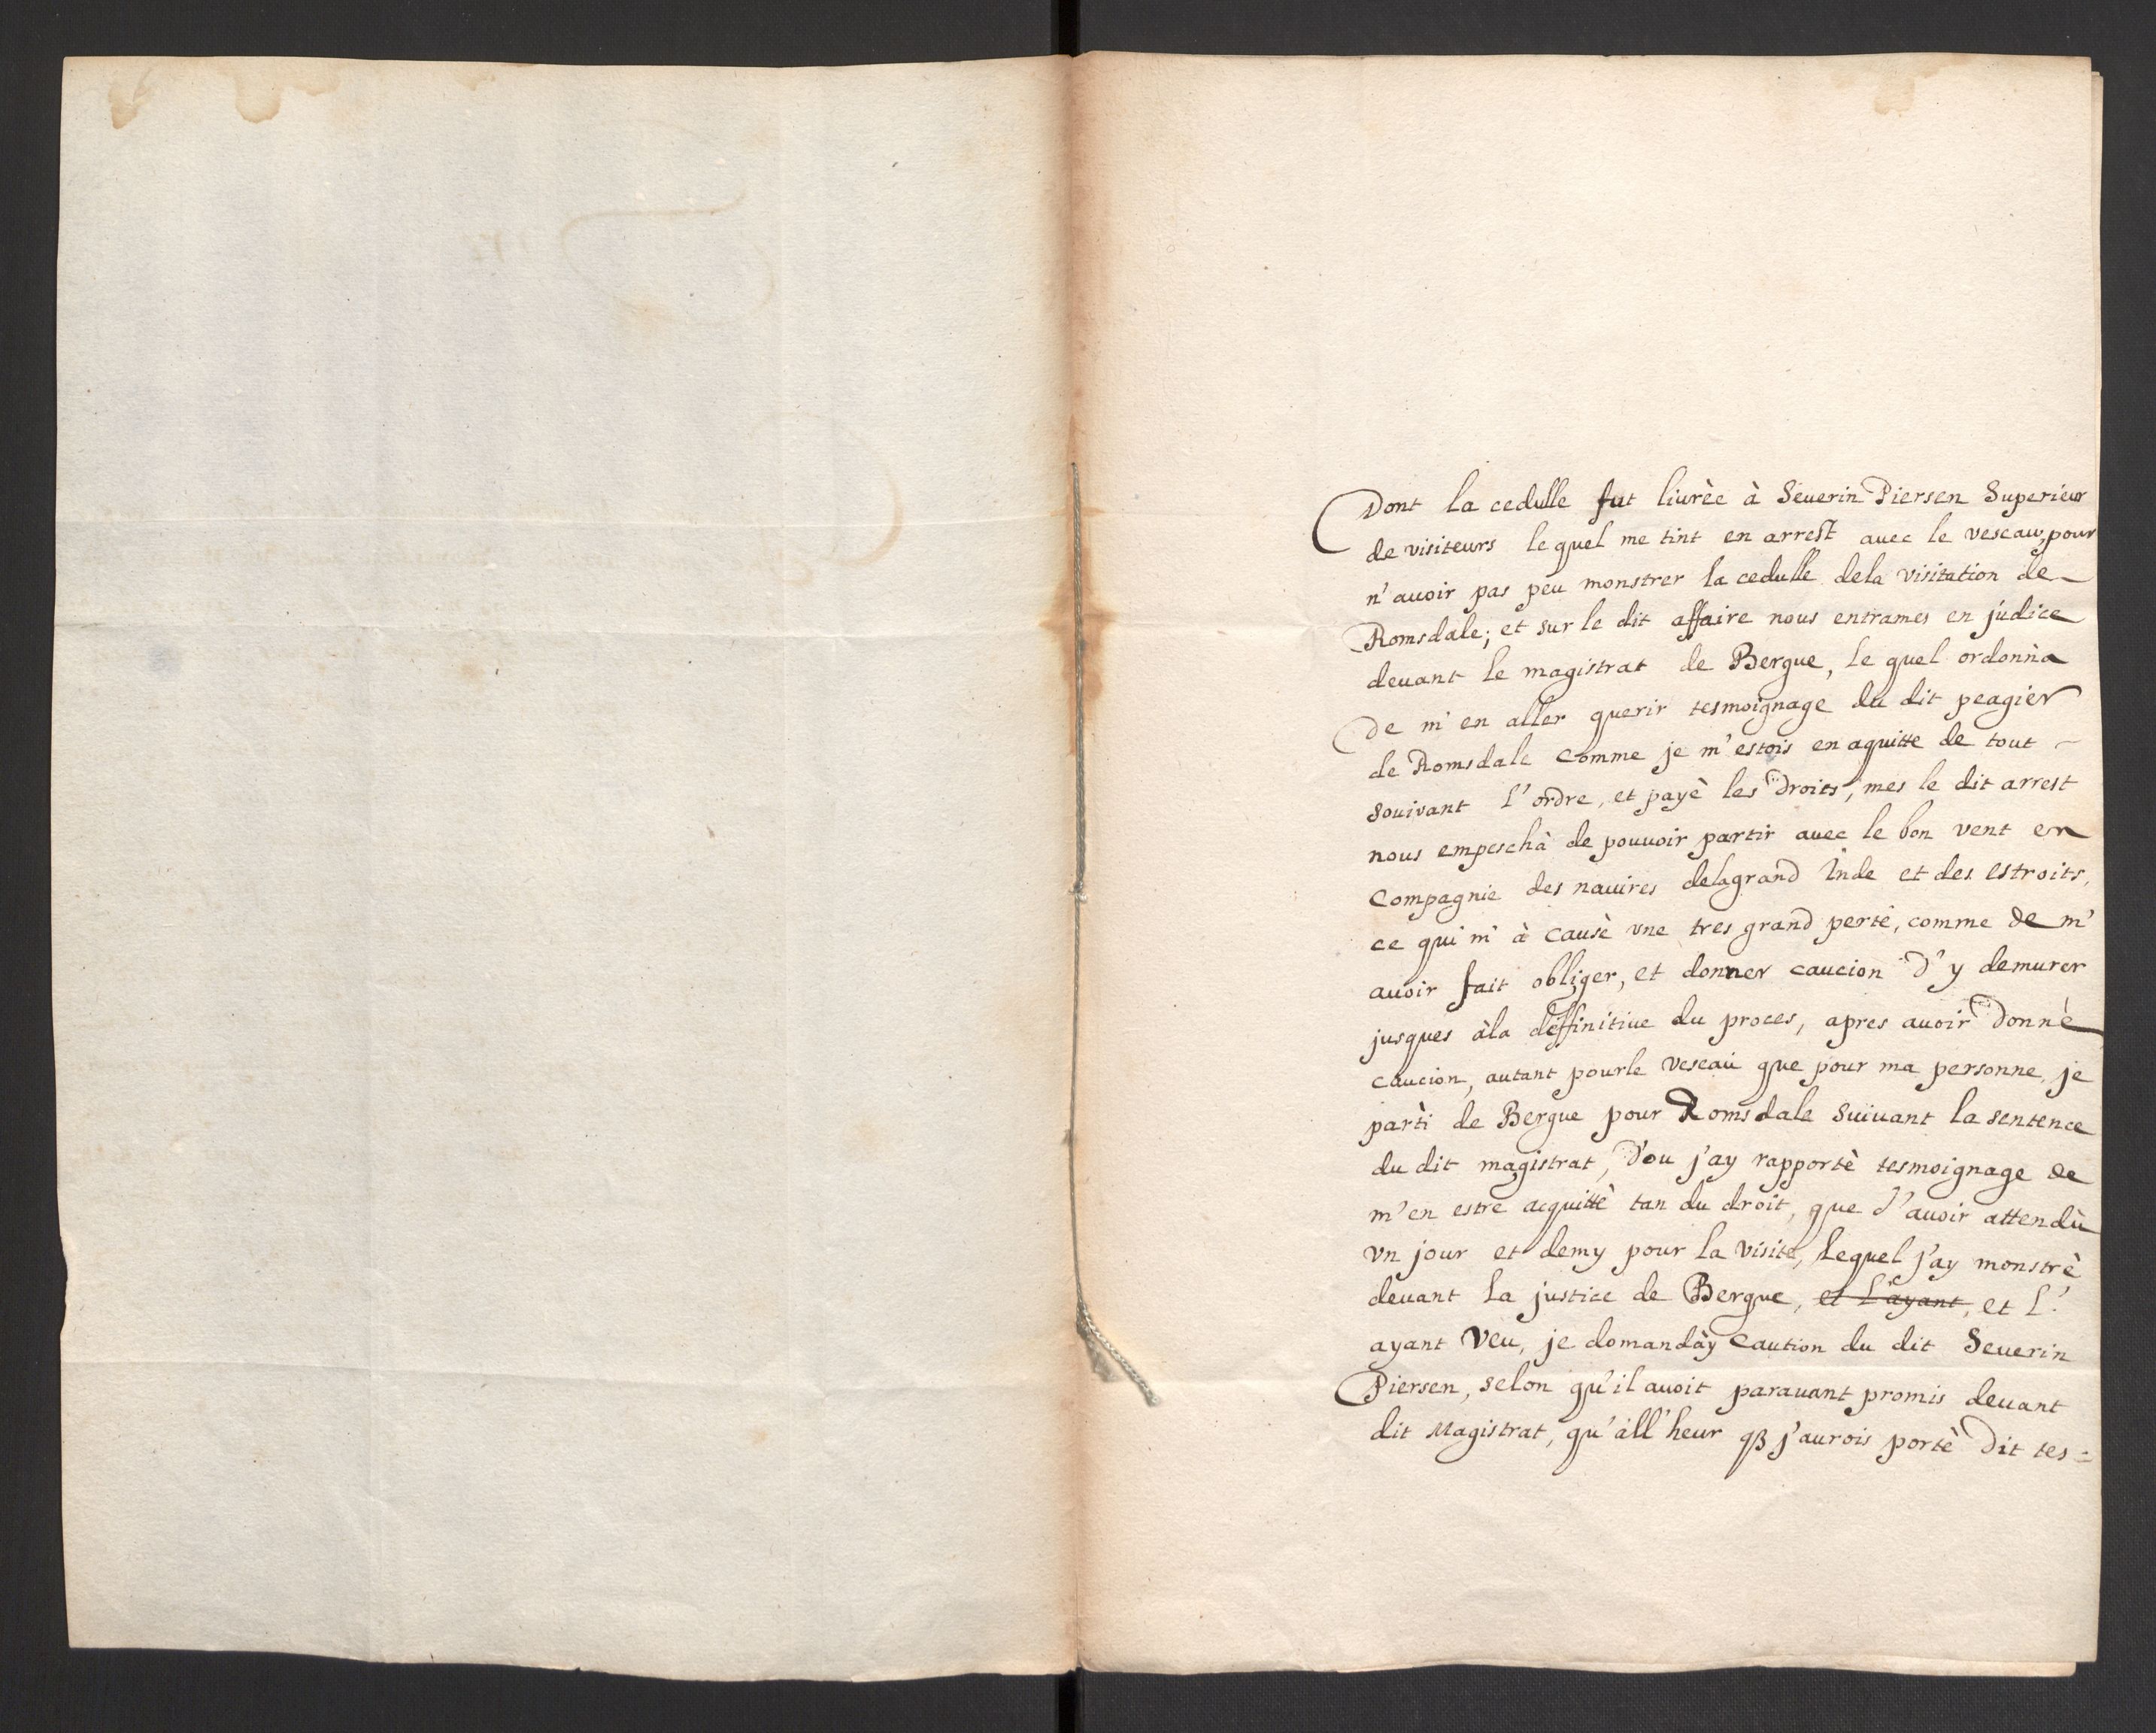 Dont la cedulle fut liurèe à Seuerin Piersen Superieur
de visiteurs le quel me tint en arrest auec le veseau, pour
n'auoir pas peu monstrer la cedulle dela visitation de
Romsdale; et sur le dit affaire nous entrames en judice
deuant le magistrat de Bergue, le quel ordonna
de m'en aller querir tesmoignage du dit peagier
de Romsdale comme je m'estois en aquitte de tout
souivant l'ordre, et payè les droits, mes le dit arrest
nous empeschà de pouuoir partir auec le bon vent en
compagnie des nauires delagrand Inde et des estroits,
ce qui m'à causè vne tres grand perte, comme de m'
auoir fait obliger, et donner caucion d'y demurer
jusques àla deffinitiue du proces, apres auoir donnè
caucion, autant pourle veseau que pour ma personne, je
parti de Bergue pour Romsdale suiuant la sentence
du dit magistrat, d'ou j'ay rapportè tesmoignage de
m'en estre acquittè tan du droit, que d'auoir attendù
vn jour et demy pour la visite, lequel j'ay monstrè
deuant la justice de Bergue, et l'ayant, et l'
ayant veu, je domandày caution du dit Seuerin
Piersen, selon qu'il auoit parauant promis deuant
dit Magistrat, qu'all'heur qβ j'aurois portè dit tes=